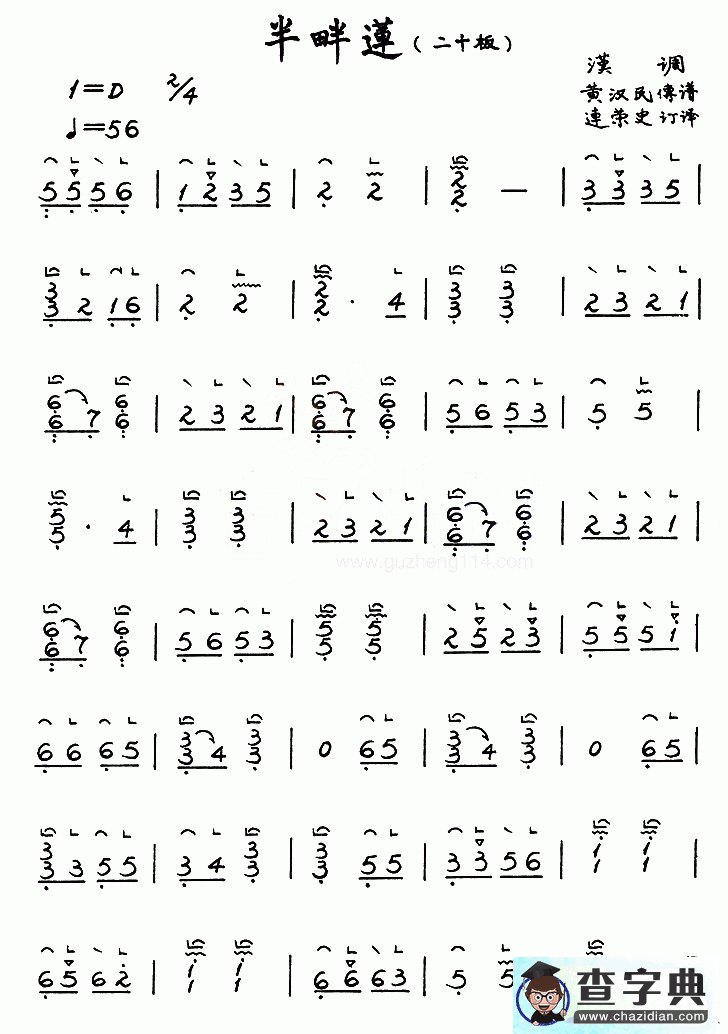 半畔蓮（二十板）
漢 調
1=D 2/4
黄汉民傳谱
♩=56
連荣史订译
5 5 5 6 | 1 2 3 5 | 2 2 | 2 2 — | 3 3 3 5 |
3 3 2 1 6 | 2 2 | 2 2 · 4 | 3 3 3 3 | 2 3 2 1 |
6 6 7 6 6 | 2 3 2 1 | 6 6 7 6 6 | 5 6 5 3 | 5 5 |
5 5 · 4 | 3 3 3 3 | 2 3 2 1 | 6 6 7 6 6 | 2 3 2 1 |
www.guzheng114.com
6 6 7 6 6 | 5 6 5 3 | 5 5 5 5 | 2 5 2 3 | 5 5 5 1 |
6 6 6 5 | 3 3 4 3 3 | 0 6 5 | 3 3 4 3 3 | 0 6 5 |
3 3 3 5 5 | 3 4 3 3 | 3 3 5 5 | 3 3 5 6 | 1 1 1 1 |
6 5 6 2 | 1 1 1 1 | 6 6 6 3 | 5 5
查字典
www.chazidian.com